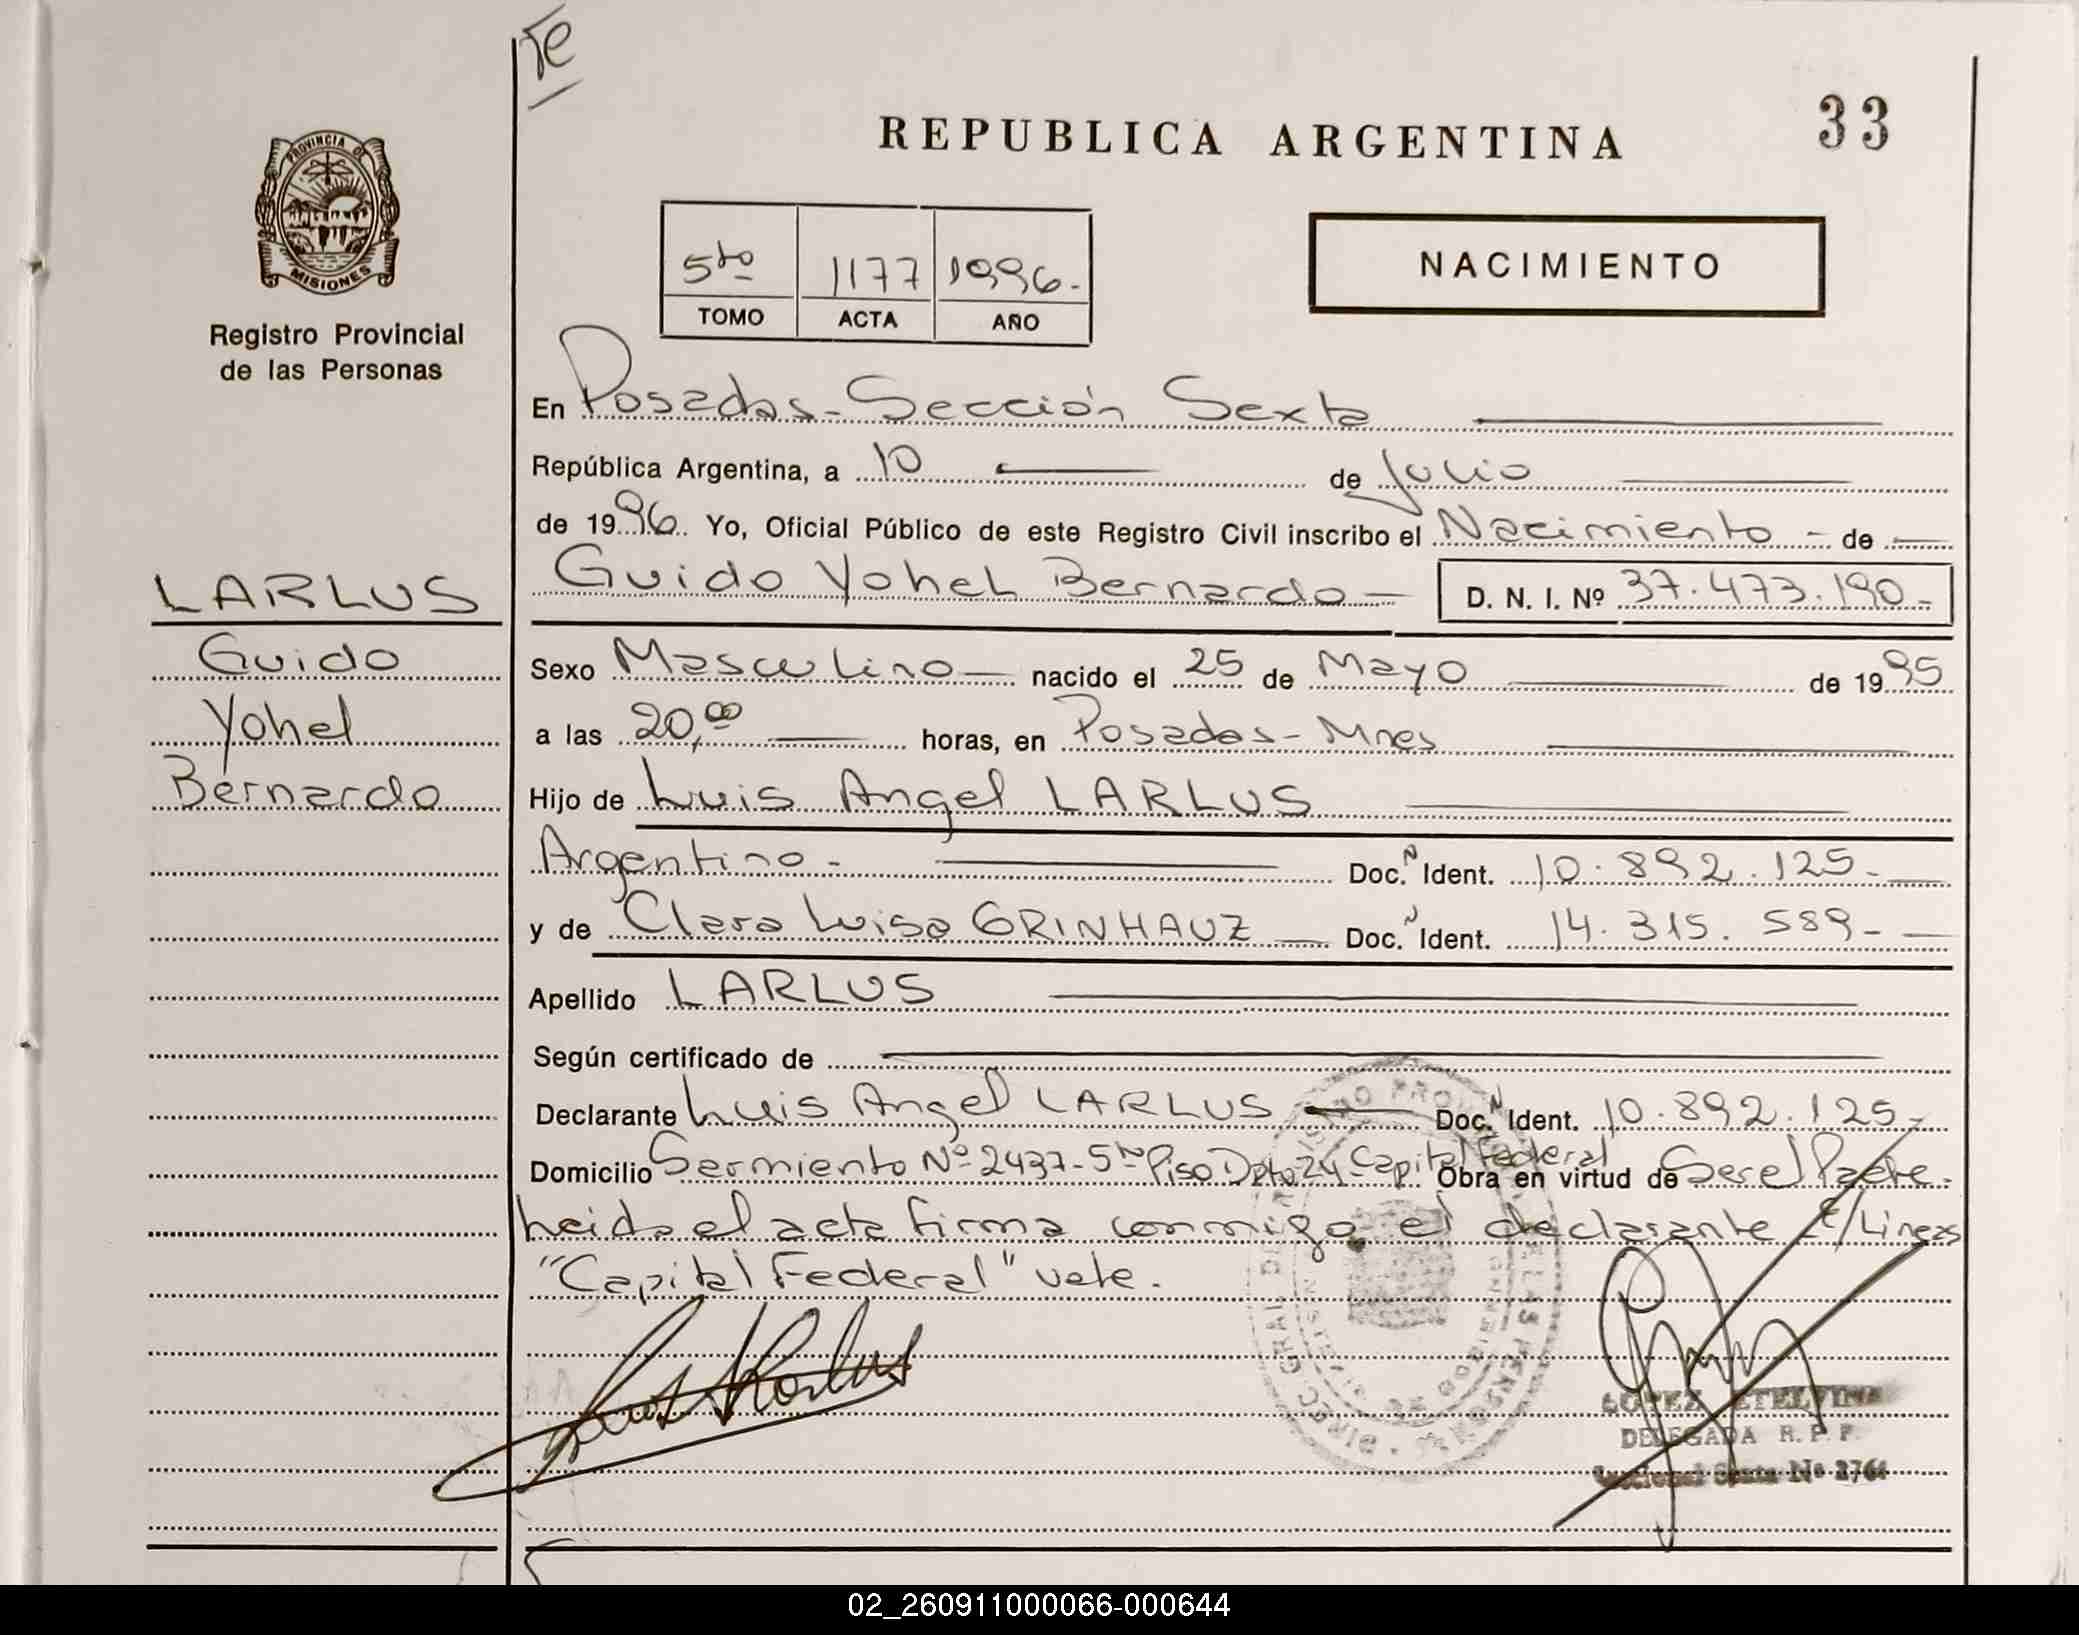 Te
REPUBLICA ARGENTINA
33
PROVINCIA DE
MISIONES
Registro Provincial
de las Personas
5to 1177 1996.-
TOMO ACTA AÑO
NACIMIENTO
En Posadas-Sección Sexta
República Argentina, a 10 de Julio
de 1996. Yo, Oficial Público de este Registro Civil inscribo el Nacimiento - de
Guido Yohel Bernardo D. N. I. Nº 37.473.190-
LARLUS
Guido
Yohel
Bernardo
Sexo Masculino nacido el 25 de Mayo de 1995
a las 20,00 horas, en Posadas-Mnes
Hijo de Luis Angel LARLUS
Argentino.- Doc.N Ident. 10.892.125-
y de Clara Luisa GRINHAUZ Doc.N Ident. 14.315.589-
Apellido LARLUS
Según certificado de
Declarante Luis Angel LARLUS Doc.N Ident. 10.892.125-
Domicilio Sarmiento Nº 2437-5to Piso Dpto 24-Capital Federal Obra en virtud de Ser el Padre.
Leida el acta firma conmigo el declarante E/Lineas
"Capital Federal" vale.
LOPEZ ETELVINA
DELEGADA R. P. P.
Seccional Sexta Nº 2764
02_260911000066-000644